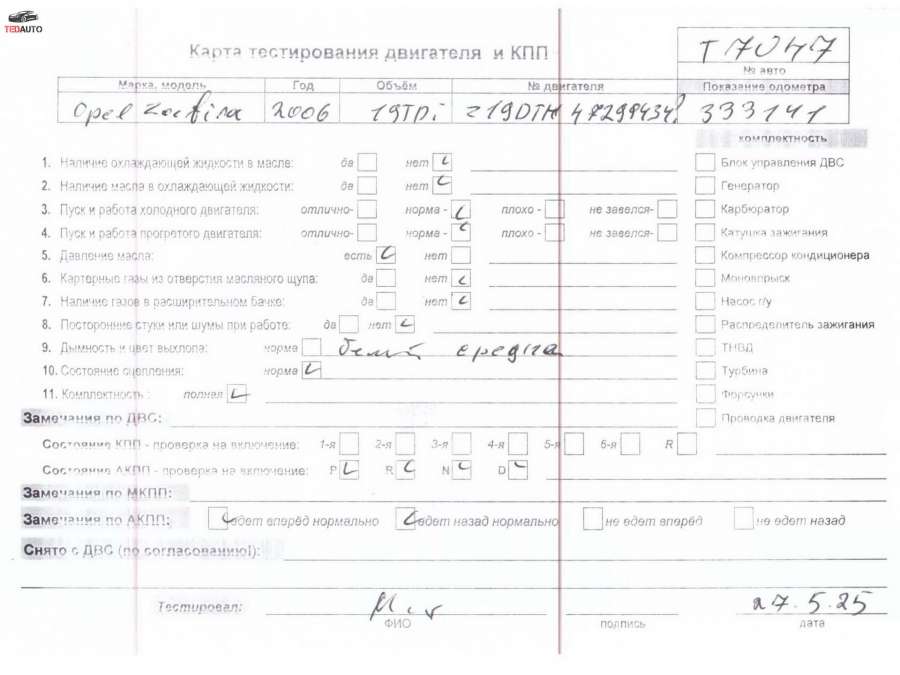 TEDAUTO
Карта тестирования двигателя и КПП
T7047
№ авто
Марка, модель Год Объём № двигателя Показание одометра
Opel Zafira 2006 19TDi z19DTH 333141
комплектность
1. Наличие охлаждающей жидкости в масле: да нет Блок управления ДВС
2. Наличие масла в охлаждающей жидкости: да нет Генератор
3. Пуск и работа холодного двигателя: отлично- норма - плохо - не завелся- Карбюратор
4. Пуск и работа прогретого двигателя: отлично- норма - плохо - не завелся- Катушка зажигания
5. Давление масла: есть нет Компрессор кондиционера
6. Картерные газы из отверстия масляного щупа: да нет Моновпрыск
7. Наличие газов в расширительном бачке: да нет Насос г/у
8. Посторонние стуки или шумы при работе: да нет Распределитель зажигания
9. Дымность и цвет выхлопа: норма белый ТНВД
10. Состояние сцепления: норма Турбина
11. Комплектность : полная Форсунки
Замечания по ДВС: Проводка двигателя
Состояние КПП - проверка на включение: 1-я 2-я 3-я 4-я 5-я 6-я R
Состояние АКПП - проверка на включение: P R N D
Замечания по МКПП:
Замечания по АКПП: едет вперёд нормально едет назад нормально не едет вперёд не едет назад
Снято с ДВС (по согласованию!):
Тестировал: 27.5.25
ФИО подпись дата